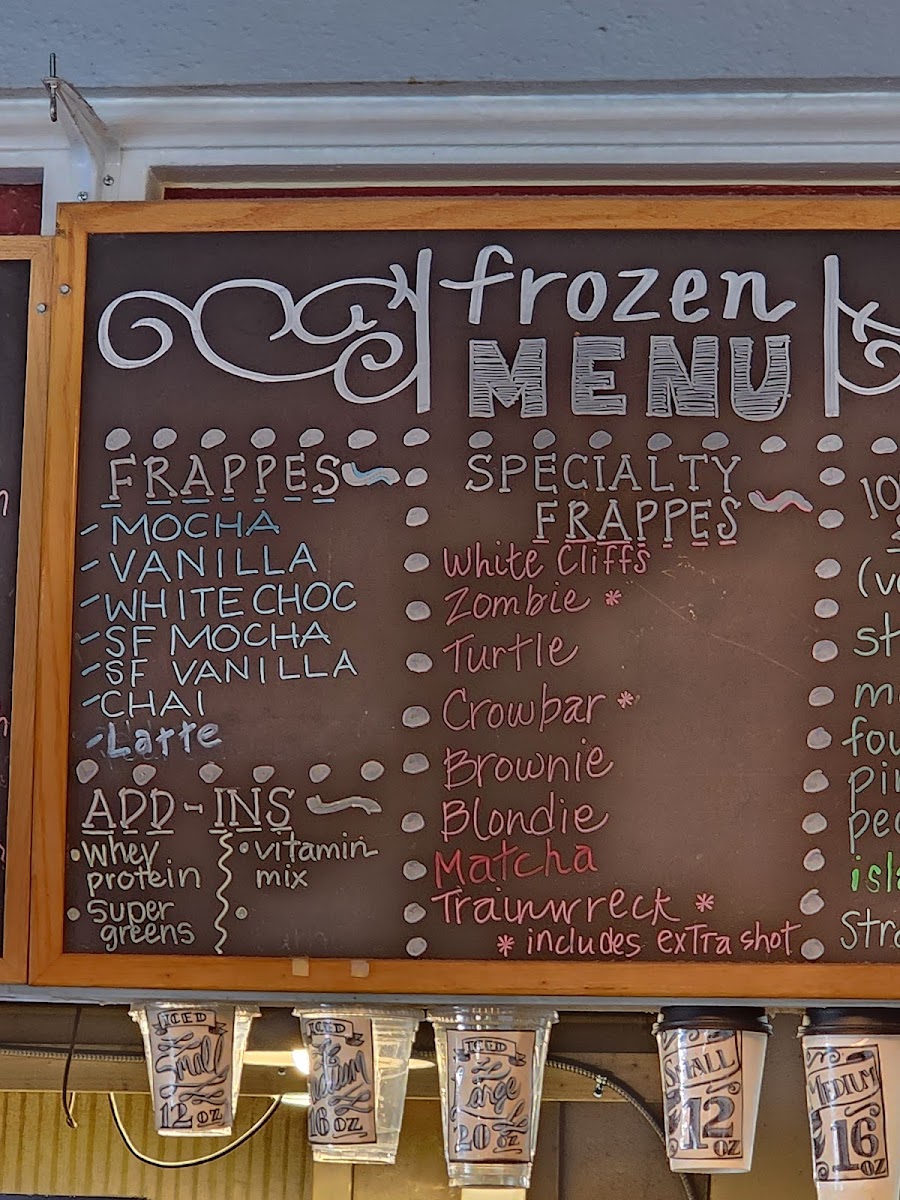 frozen
MENU
FRAPPES
- MOCHA
- VANILLA
- WHITE CHOC
- SF MOCHA
- SF VANILLA
- CHAI
- Latte
ADD-INS
• whey protein
• super greens
• vitamin mix
•
SPECIALTY
FRAPPES
White Cliffs
Zombie *
Turtle
Crowbar *
Brownie
Blondie
Matcha
Trainwreck *
* includes exTra shot
10
(v
st
m
fou
pi
pe
isl
Str
ICED
Small
12 oz
ICED
16 oz
ICED
Large
20 oz
SMALL
12
OZ
MEDIUM
16
OZ